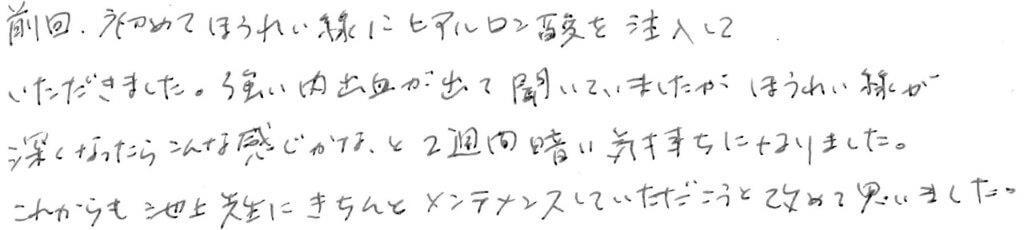 前回、初めてほうれい線にヒアルロン酸を注入して
いただきました。強い内出血が出て聞いていましたが ほうれい線が
深くなったらこんな感じかな、と2週間暗い気持ちになりました。
これからも池上先生にきちんとメンテナンスしていただこうと改めて思いました。